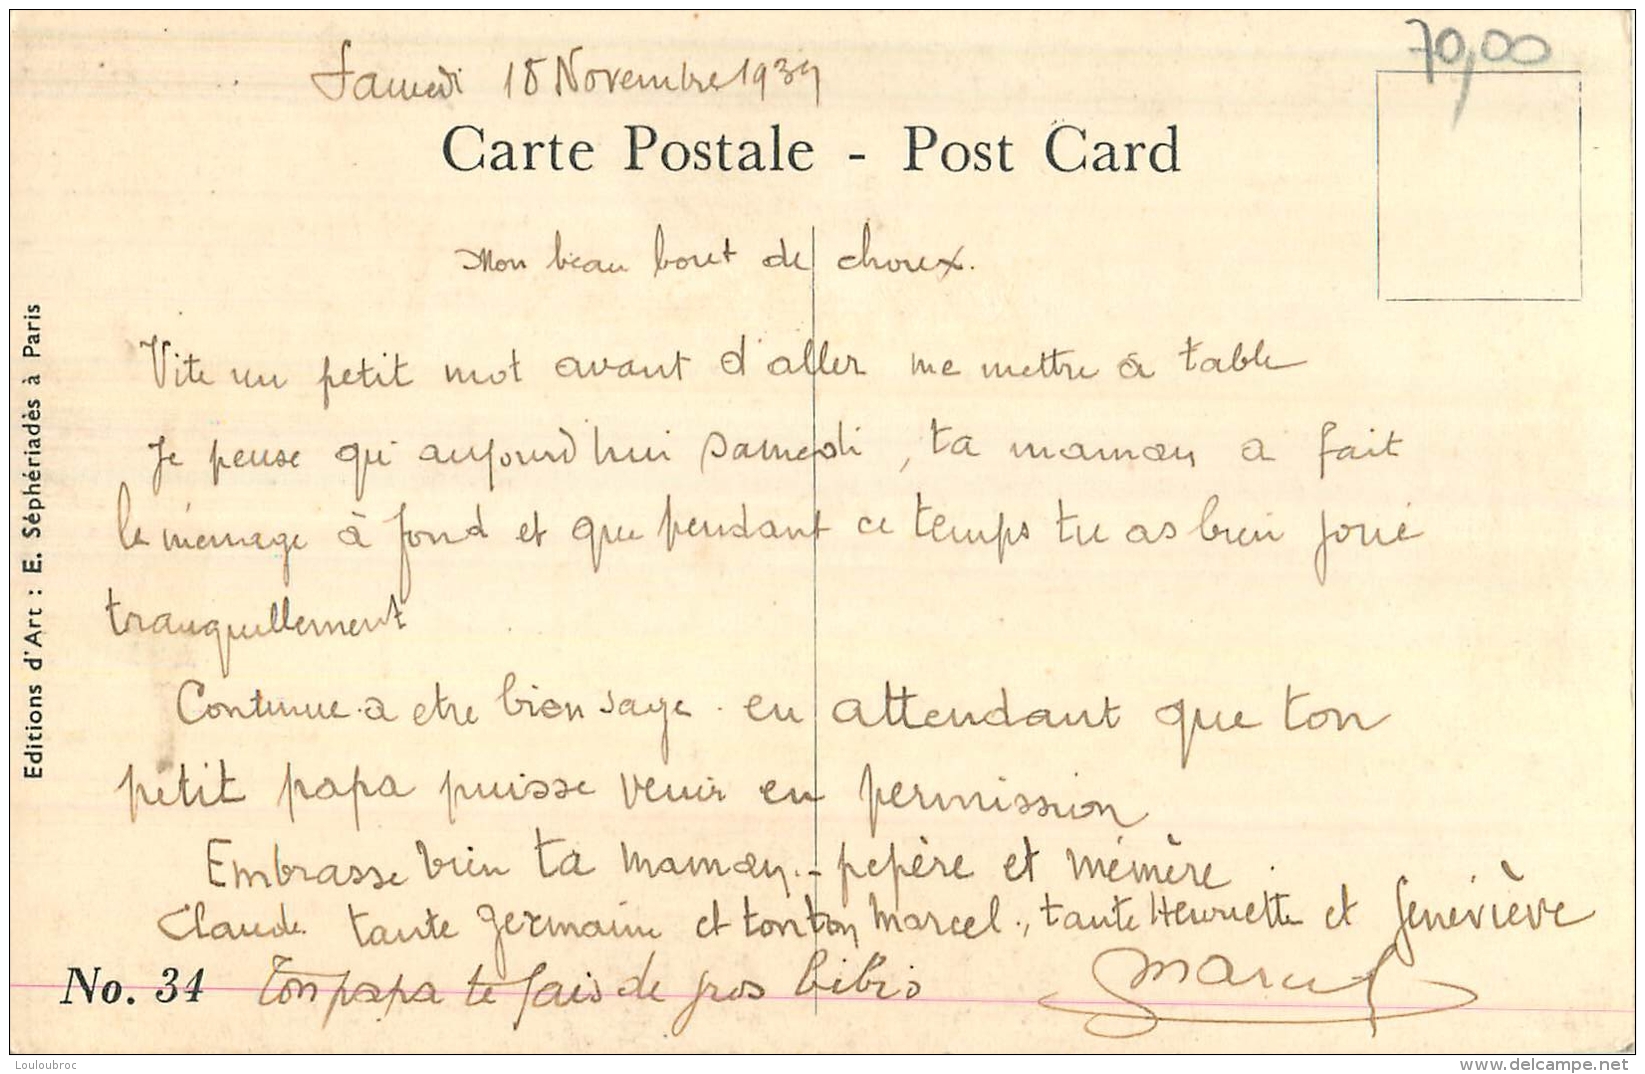 70,00
Samedi 18 Novembre 1939
Carte Postale - Post Card
Mon beau bout de choux.
Vite un petit mot avant d'aller me mettre à table
Je pense qu'aujourd'hui samedi, ta maman a fait
le ménage à fond et que pendant ce temps tu as bien joué
tranquillement
Continue a etre bien sage en attendant que ton
petit papa puisse venir en permission
Embrasse bien ta maman - pépère et mémère
Claude tante Germaine et tonton Marcel, tante Henriette et Geneviève
Ton papa te fais de gros bibis
Marcel
No. 34
Editions d'Art : E. Séphériadès à Paris
Louloubroc
www.delcampe.net